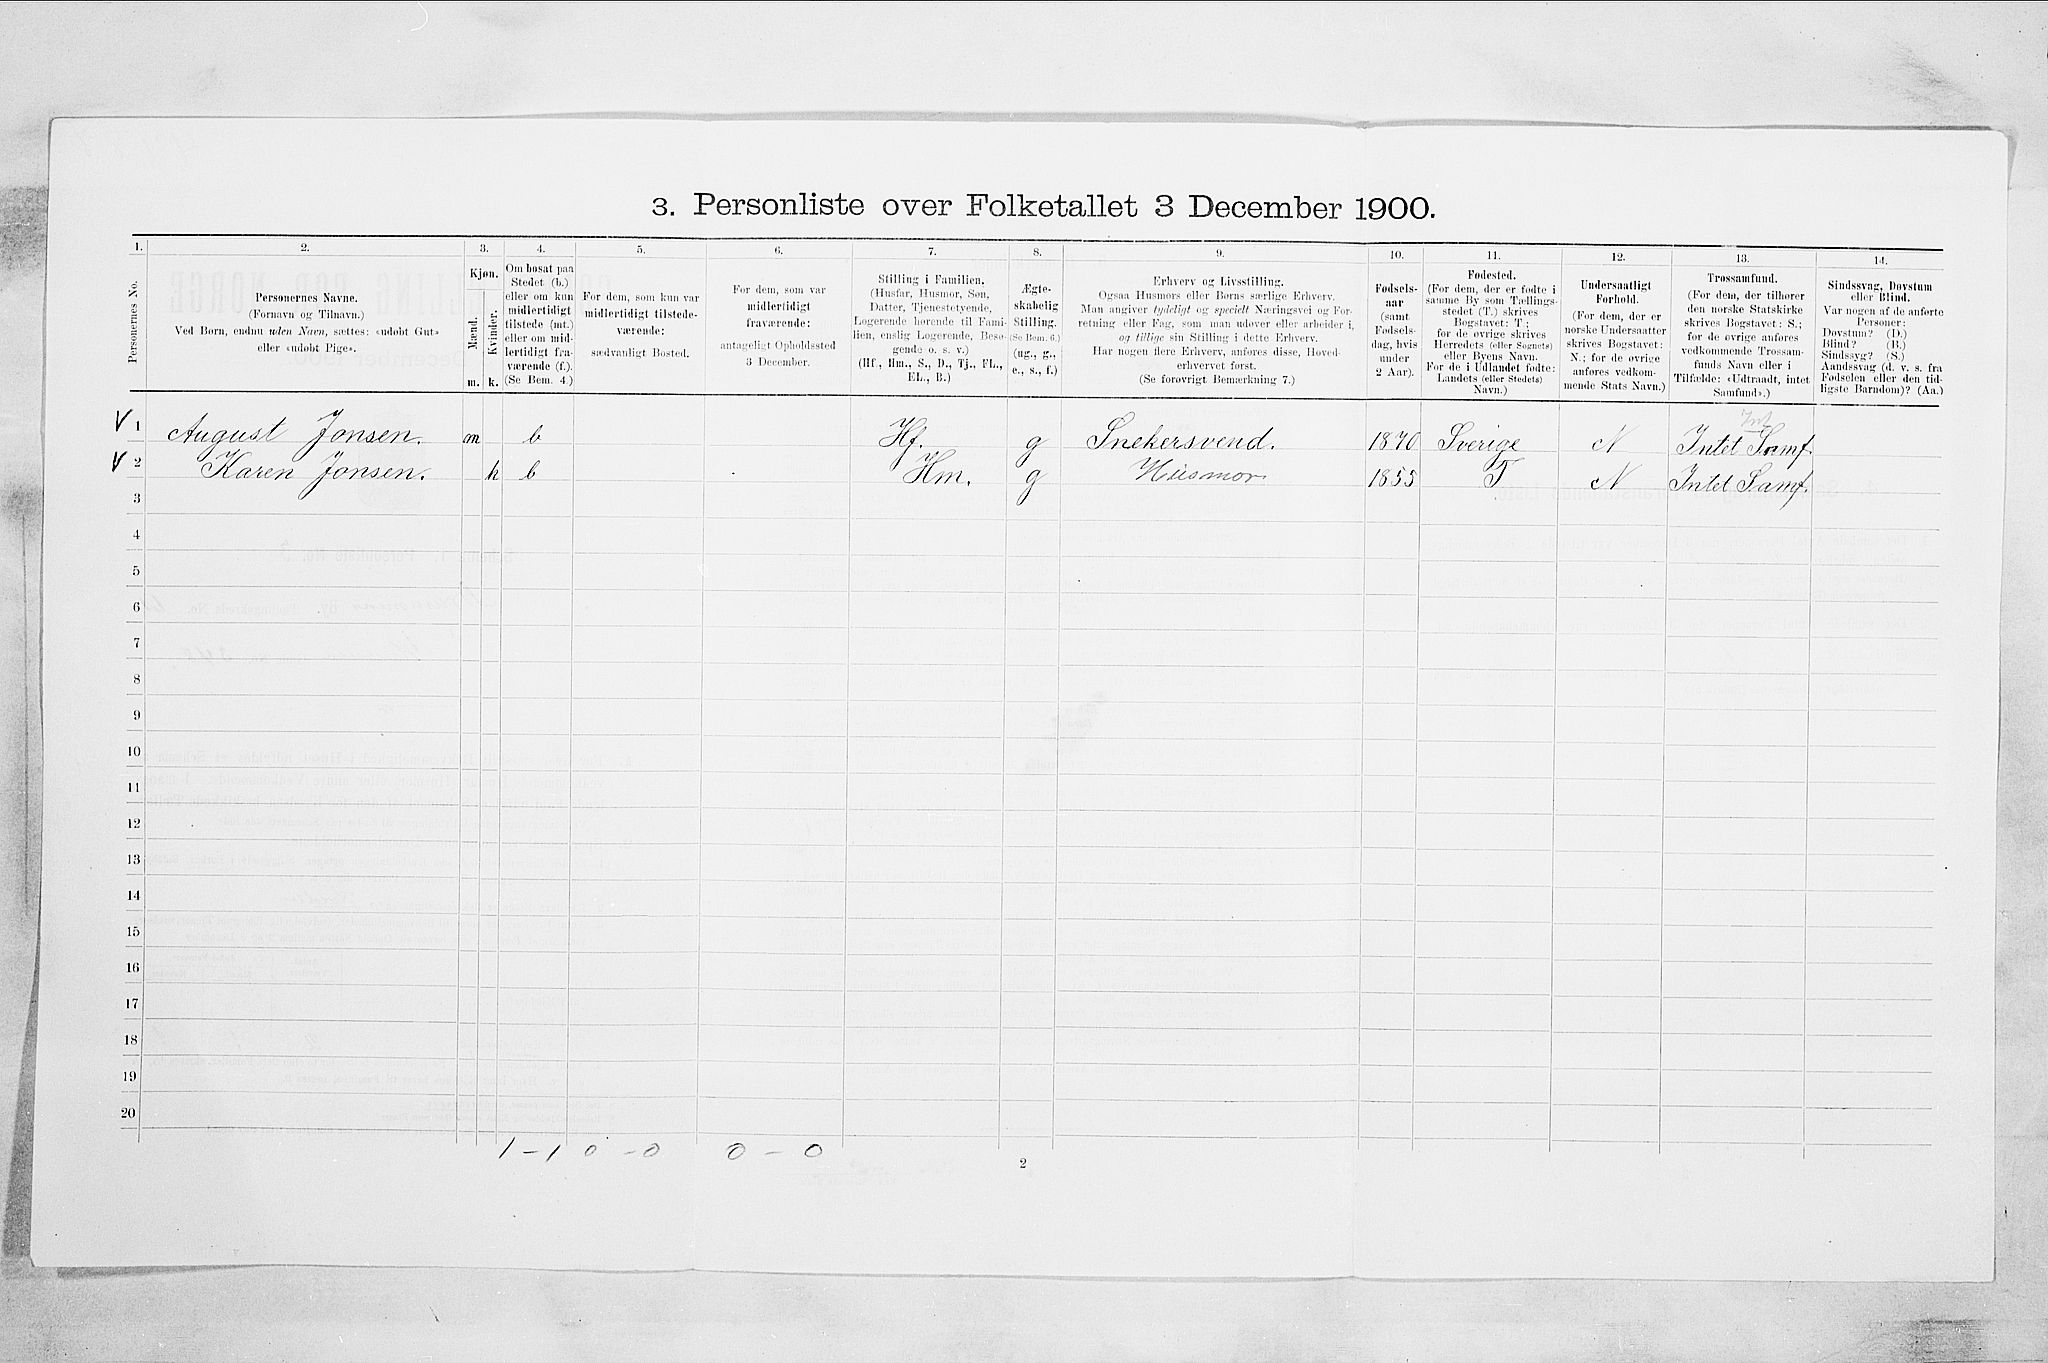 3. Personliste over Folketallet 3 December 1900.
1. 2. 3. 4. 5. 6. 7. 8. 9. 10. 11. 12. 13. 14.
Personernes No.
Personernes Navne.
(Fornavn og Tilnavn.)
Ved Børn, endnu uden Navn, sættes: «udøbt Gut»
eller «udøbt Pige».
Kjøn.
Mænd.
Kvinder.
m. k.
Om bosat paa
Stedet (b.)
eller om kun
midlertidigt
tilstede (mt.)
eller om mid-
lertidigt fra-
værende (f.).
(Se Bem. 4.)
For dem, som kun var
midlertidigt tilstede-
værende:
sædvanligt Bosted.
For dem, som var
midlertidigt
fraværende:
antageligt Opholdssted
3 December.
Stilling i Familien.
(Husfar, Husmor, Søn,
Datter, Tjenestetyende,
Logerende hørende til Fami-
lien, enslig Logerende, Besø-
gende o. s. v.)
(Hf., Hm., S., D., Tj., FL.,
EL., B.)
Ægte-
skabelig
Stilling.
(Se Bem. 6.)
(ug., g.,
e., s., f.)
Erhverv og Livsstilling.
Ogsaa Husmors eller Børns særlige Erhverv.
Man angiver tydeligt og specielt Næringsvei og For-
retning eller Fag, som man udøver eller arbeider i,
og tillige sin Stilling i dette Erhverv.
Har nogen flere Erhverv, anføres disse, Hoved-
erhvervet først.
(Se forøvrigt Bemærkning 7.)
Fødsels-
aar
(samt
Fødsels-
dag, hvis
under
2 Aar).
Fødested.
(For dem, der er fødte i
samme By som Tællings-
stedet (T.) skrives
Bogstavet: T.;
for de øvrige skrives
Herredets (eller Sognets)
eller Byens Navn.
For de i Udlandet fødte:
Landets (eller Stedets)
Navn.)
Undersaatligt
Forhold.
(For dem, der er
norske Undersaatter
skrives Bogstavet:
N.; for de øvrige
anføres vedkom-
mende Stats Navn.)
Trossamfund.
(For dem, der tilhører
den norske Statskirke
skrives Bogstavet: S.;
for de øvrige anføres
vedkommende Trossam-
funds Navn eller i
Tilfælde: «Udtraadt, intet
Samfund».)
Sindssvag, Døvstum
eller Blind.
Var nogen af de anførte
Personer:
Døvstum? (D.)
Blind? (B.)
Sindssyg? (S.)
Aandssvag (d. v. s. fra
Fødselen eller den tid-
ligste Barndom)? (Aa.)
V 1 August Jonsen. m b Hf. g Snekersvend. 1870 Sverige N Intet Samf.
V 2 Karen Jonsen. k b Hm. g Husmor. 1855 T N Intet Samf.
3
4
5
6
7
8
9
10
11
12
13
14
15
16
17
18
19
20
1 - 1 0 - 0 0 - 0
2